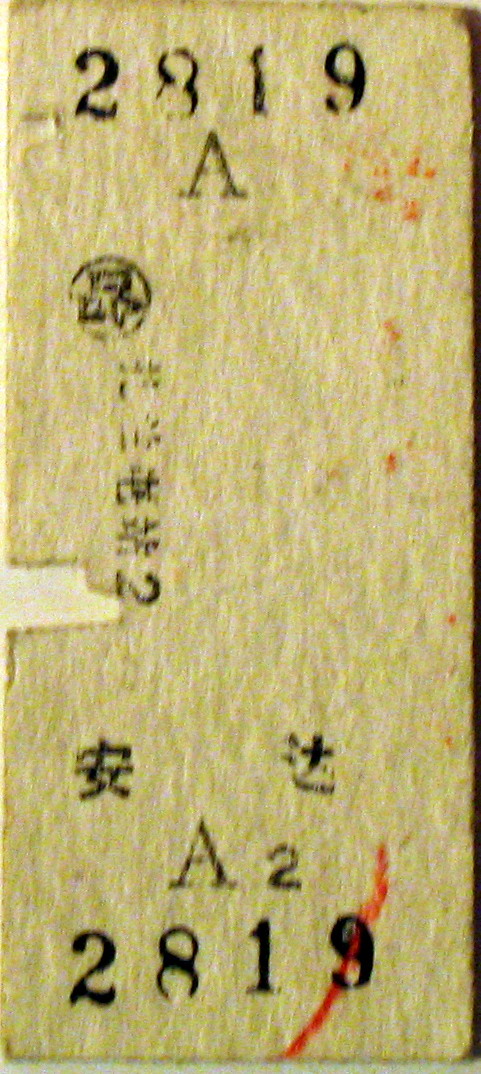 2819
A
电站2
安达
A 2
2819